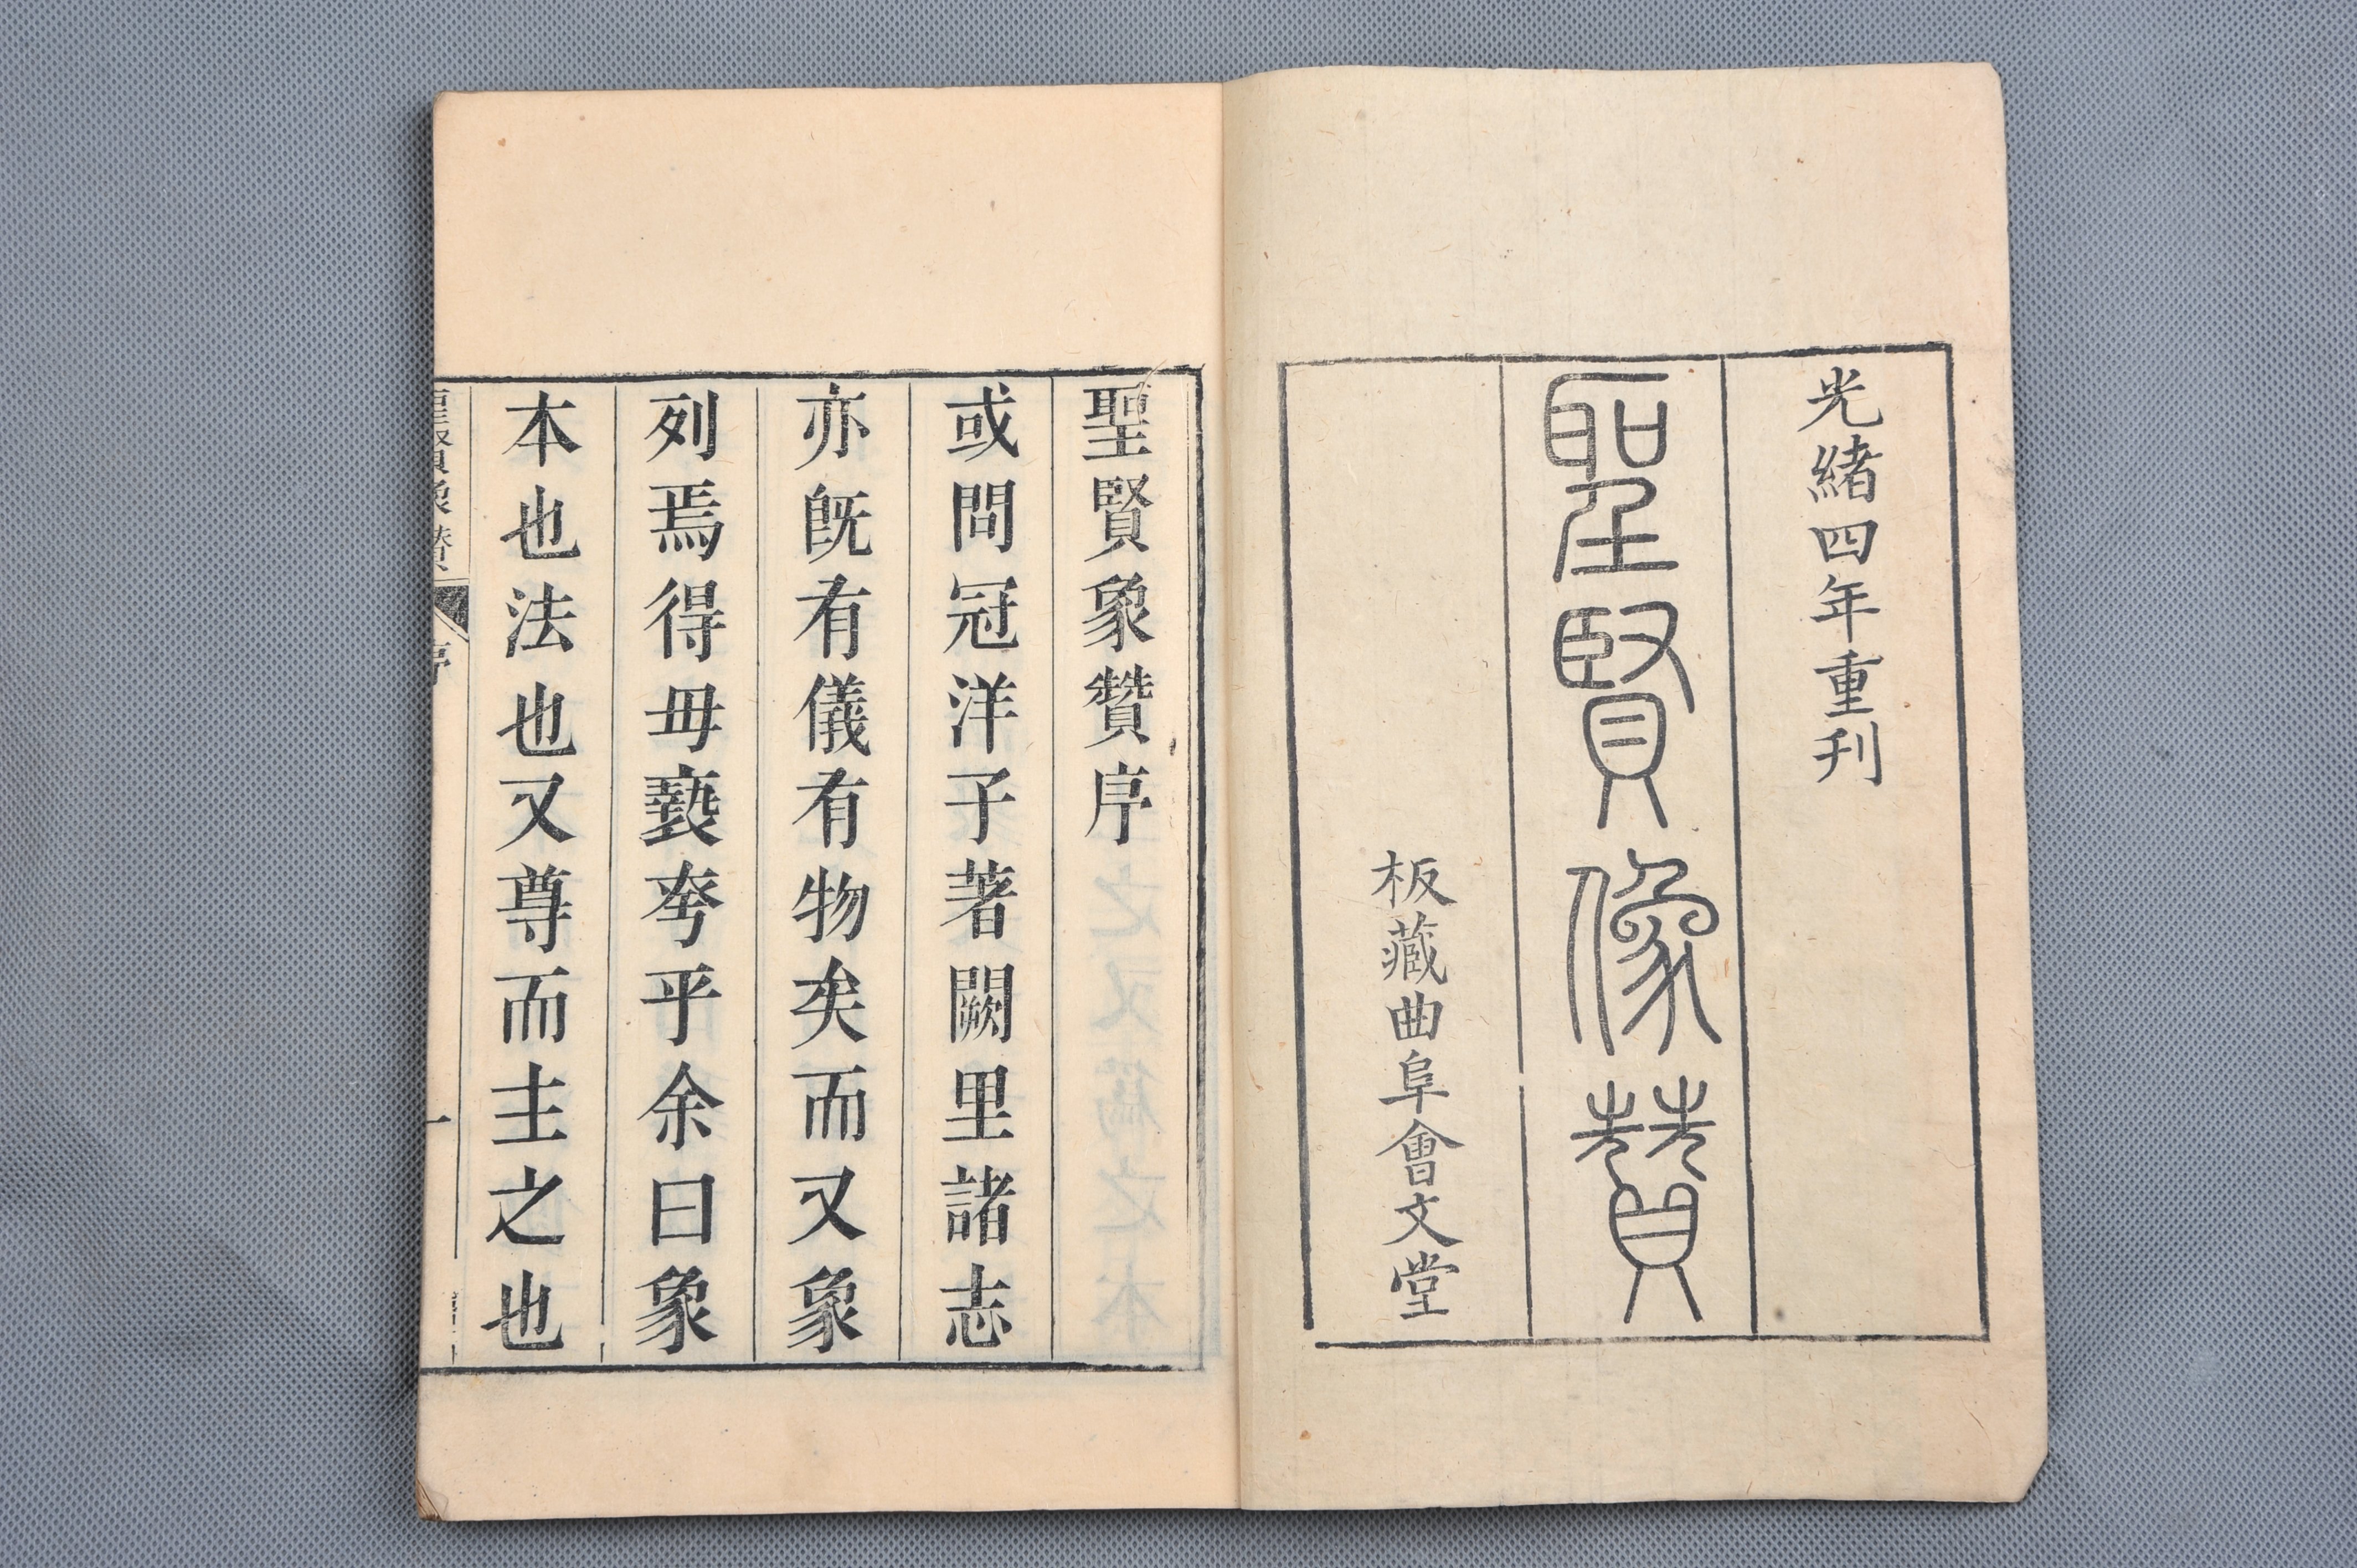 光緒四年重刊
聖賢像贊
板藏曲阜會文堂
聖賢象贊序
或問冠洋子著闕里諸志
亦旣有儀有物矣而又象
列焉得毋褻夸乎余曰象
本也法也又尊而主之也
聖賢象贊
序
一